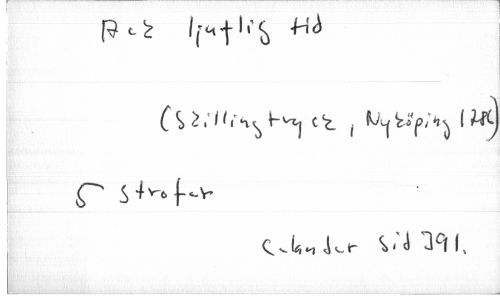 Ack ljuflig tid
(Skillingtryck, Nyköping 1786)
5 strofer
Celander sid 391.